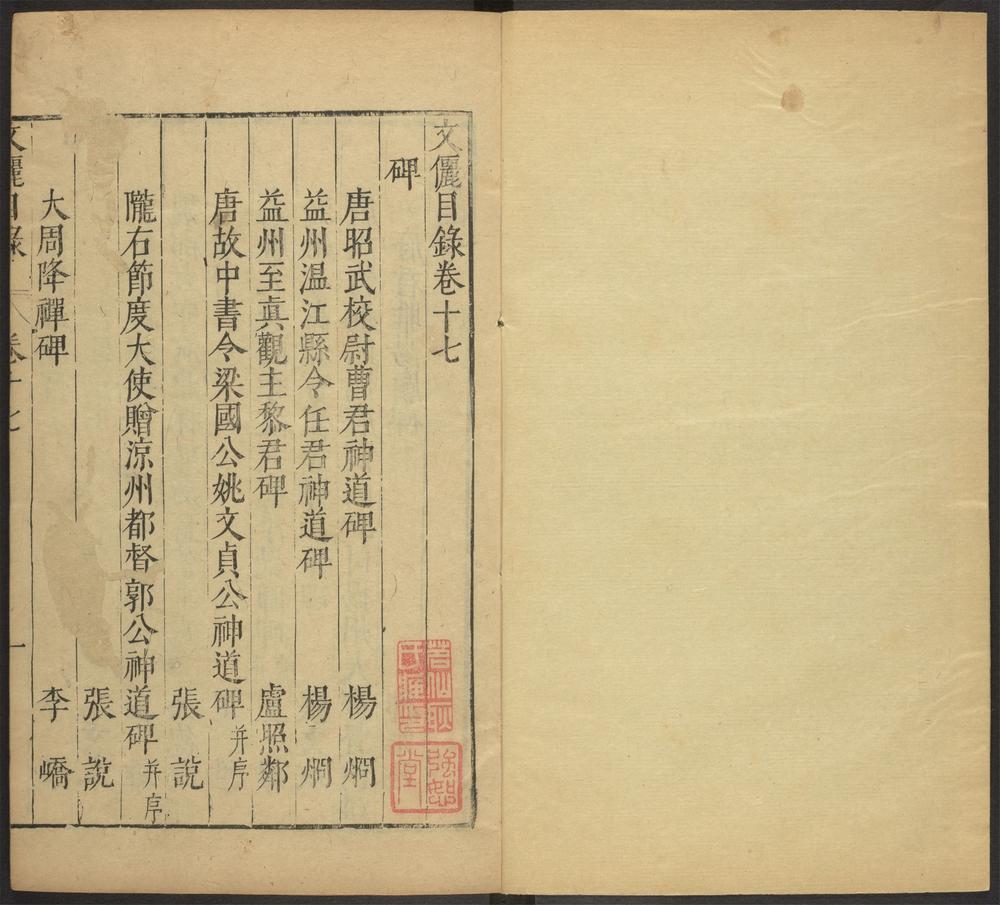 文儷目錄卷十七
碑
唐昭武校尉曹君神道碑 楊烱
益州温江縣令任君神道碑 楊烱
益州至眞觀主黎君碑 盧照鄰
唐故中書令梁國公姚文貞公神道碑 并序
張說
隴右節度大使贈涼州都督郭公神道碑 并序
張說
大周降禪碑 李嶠
文儷目錄 卷十七 一
強恕堂